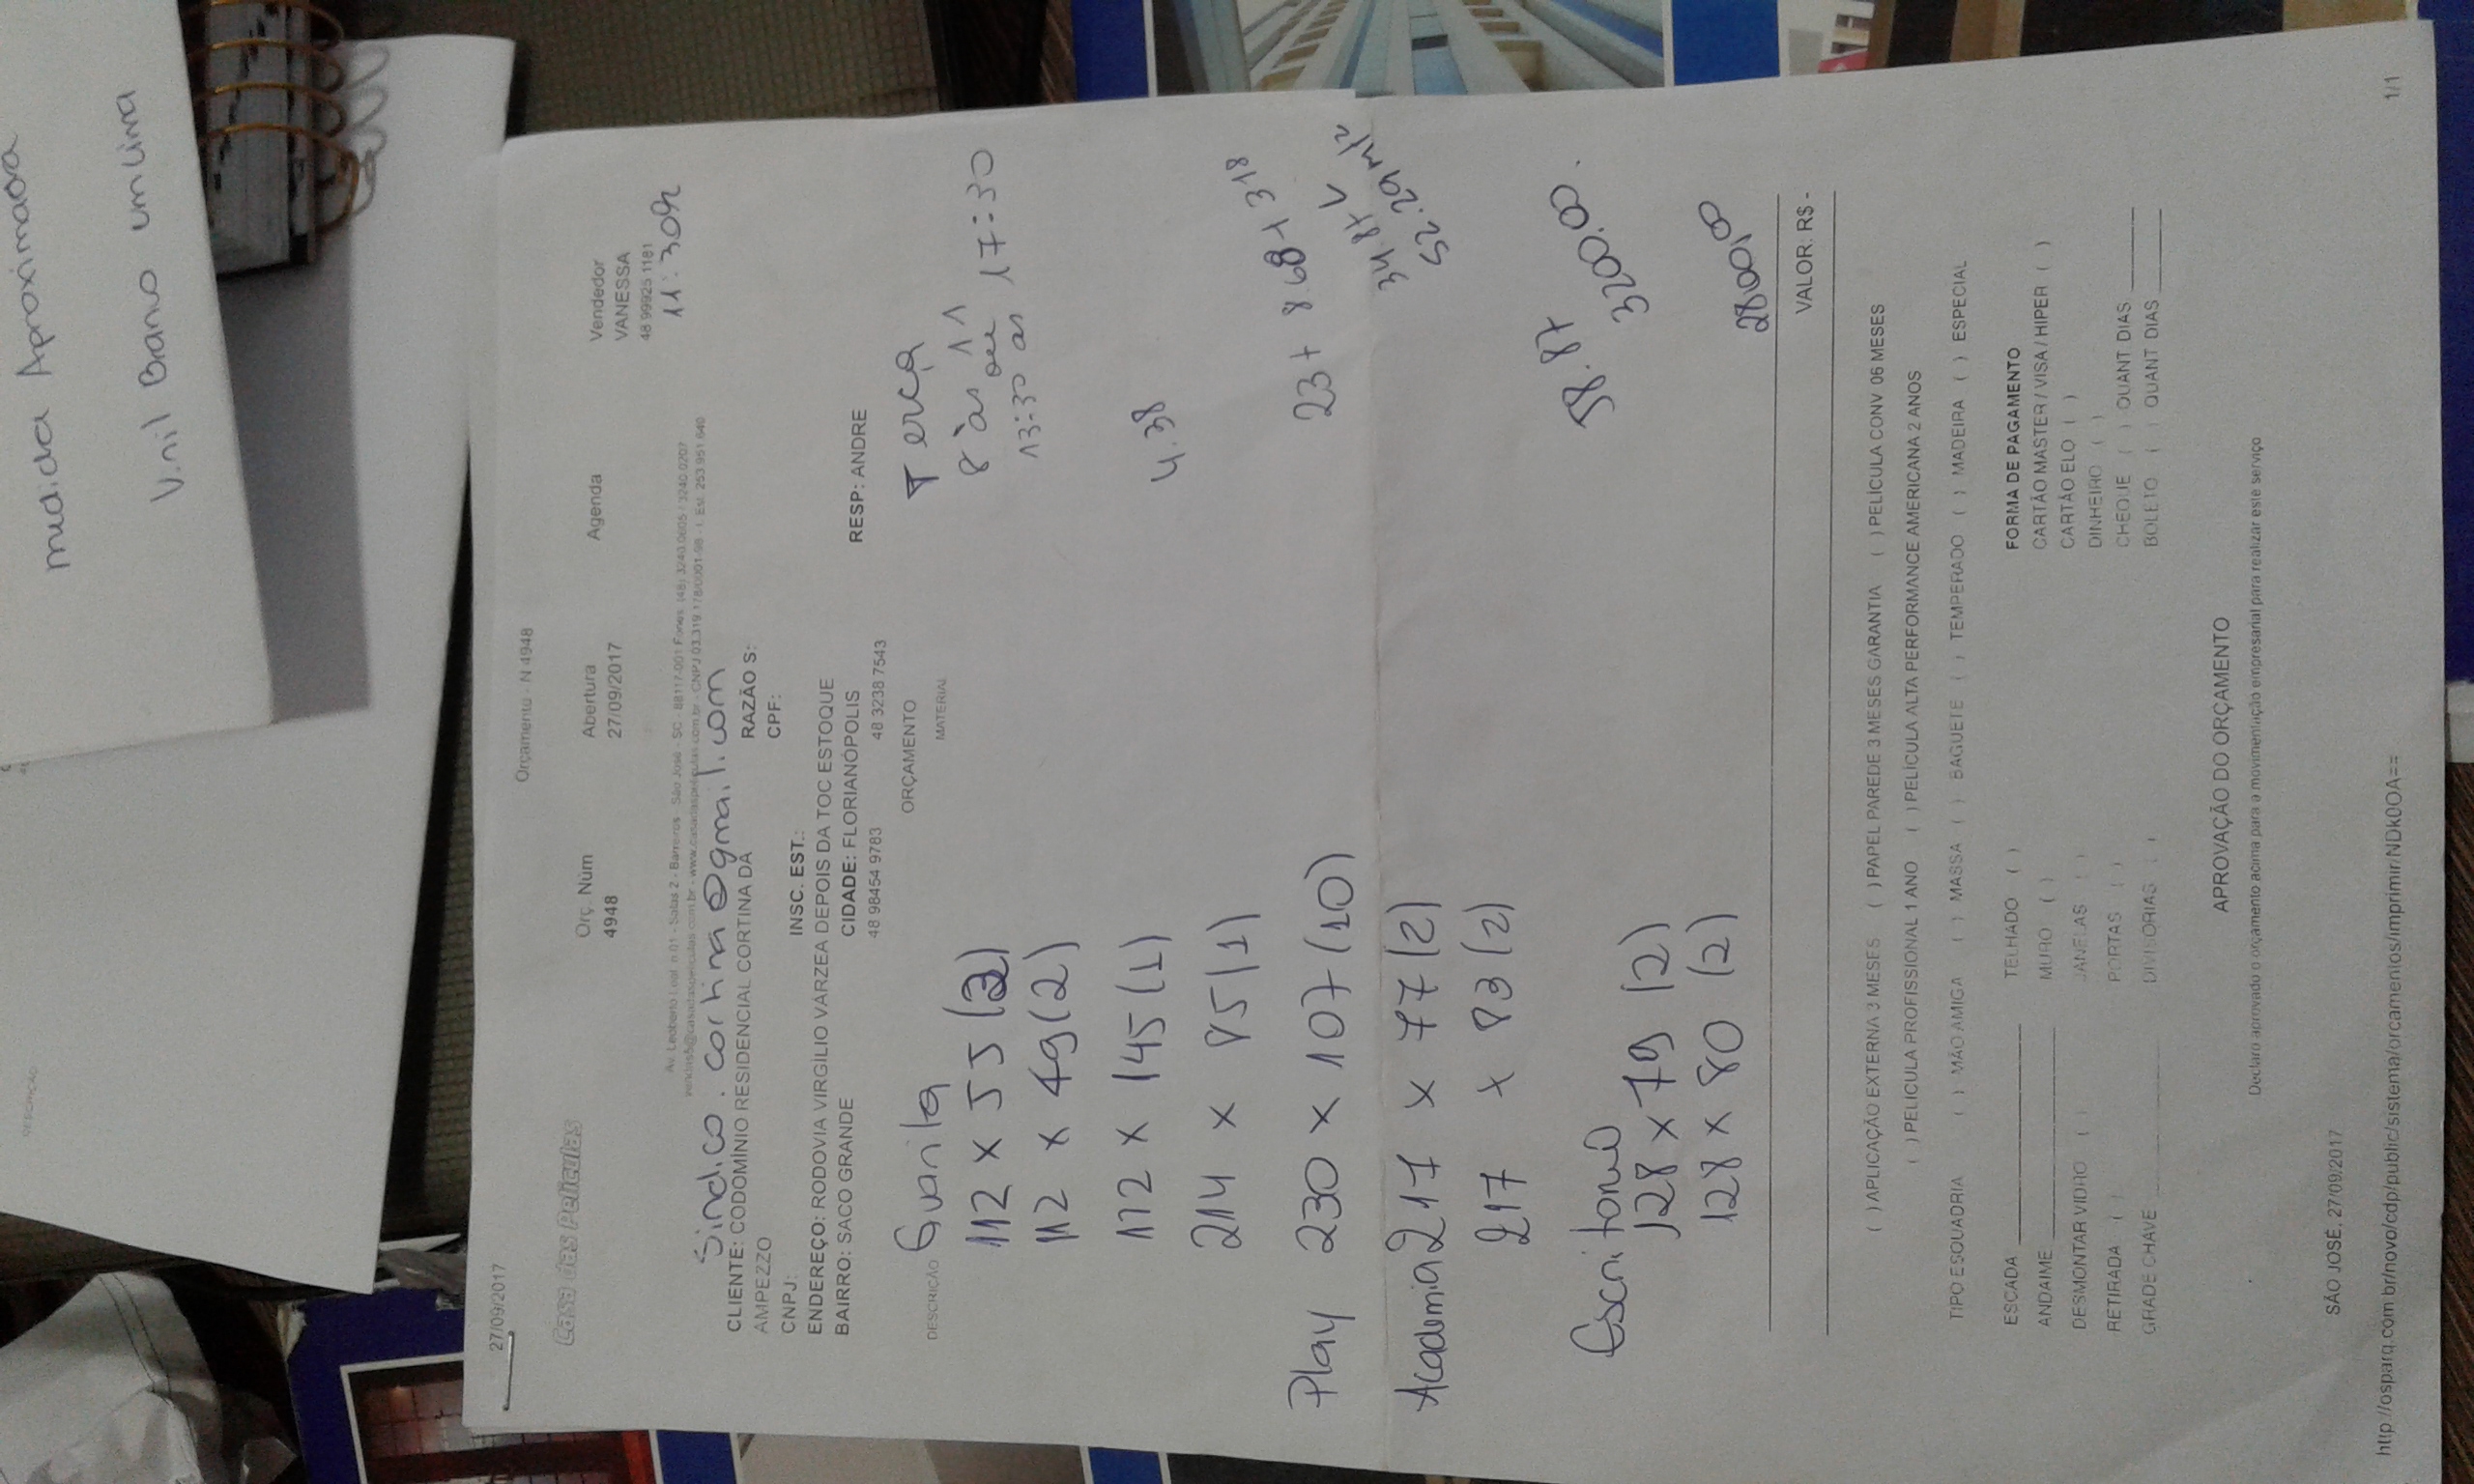 medida Aproximada
Vinil Branco um Lina
27/09/2017
Orçamento - N 4948
Casa das Películas
Orç. Núm
4948
Abertura
27/09/2017
Agenda
Vendedor
VANESSA
48 99925 1181
11:30h
Av. Leoberto Leal, n 01 - Salas 2 - Barreiros - São José - SC - 88117-001 Fones: (48) 3240.0605 / 3240.0207
sindico.cortina@gmail.com
CLIENTE: CODOMÍNIO RESIDENCIAL CORTINA DA
AMPEZZO
RAZÃO S:
CNPJ:
CPF:
INSC. EST.:
ENDEREÇO: RODOVIA VIRGÍLIO VARZEA DEPOIS DA TOC ESTOQUE
BAIRRO: SACO GRANDE
CIDADE: FLORIANÓPOLIS
RESP: ANDRE
48 98454 9783
48 3238 7543
ORÇAMENTO
DESCRIÇÃO
MATERIAL
Guarita
Terça
8 às 11
13:30 as 17:30
112 x 55 (2)
112 x 49 (2)
112 x 145 (1)
4.38
214 x 85 (1)
Play 230 x 107 (10)
23+ 8.68+ 318
34.87 V
52.29 m/2
Academia 217 x 77 (2)
217 x 83 (2)
58.87
3200.00.
Escritorio
128 x 79 (2)
128 x 80 (2)
2800,00
VALOR. R$ -
( ) APLICAÇÃO EXTERNA 3 MESES ( ) PAPEL PAREDE 3 MESES GARANTIA ( ) PELÍCULA CONV 06 MESES
( ) PELICULA PROFISSIONAL 1 ANO ( ) PELÍCULA ALTA PERFORMANCE AMERICANA 2 ANOS
TIPO ESQUADRIA ( ) MÃO AMIGA ( ) MASSA ( ) BAGUETE ( ) TEMPERADO ( ) MADEIRA ( ) ESPECIAL
ESCADA
TELHADO ( )
FORMA DE PAGAMENTO
ANDAIME
MURO ( )
CARTÃO MASTER / VISA / HIPER ( )
DESMONTAR VIDRO ( )
JANELAS ( )
CARTÃO ELO ( )
RETIRADA ( )
PORTAS ( )
DINHEIRO ( )
GRADE CHAVE
DIVISORIAS ( )
CHEQUE ( ) QUANT DIAS
BOLETO ( ) QUANT DIAS
APROVAÇÃO DO ORÇAMENTO
Declaro aprovado o orçamento acima para a movimentação empresarial para realizar este serviço
SÃO JOSÉ, 27/09/2017
http://osparq.com.br/novo/cdp/public/sistema/orcamentos/imprimir/NDk0OA==
1/1